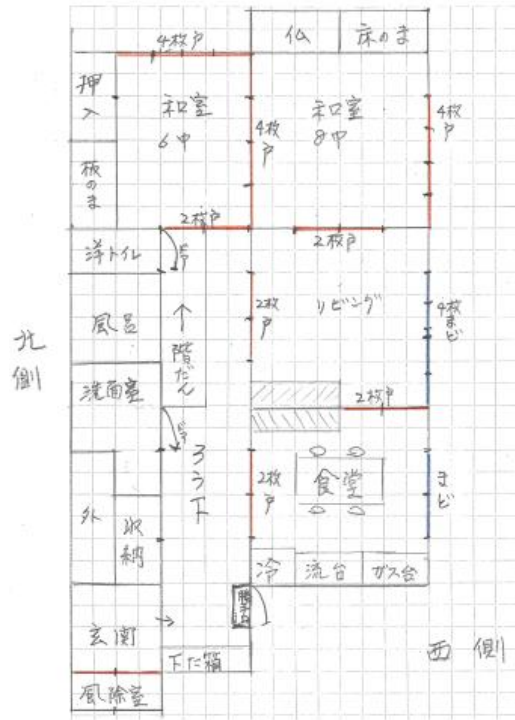 4枚戸
仏
床のま
押入
和室
6中
4枚戸
和室
8中
4枚戸
板のま
2枚戸
2枚戸
洋トイレ
風呂
北側
↑階だん
2枚戸
リビング
4枚まど
洗面室
2枚戸
ろう下
2枚戸
食堂
まど
外
収納
冷
流台
ガス台
玄関
→
勝手口
下だ箱
西側
風除室